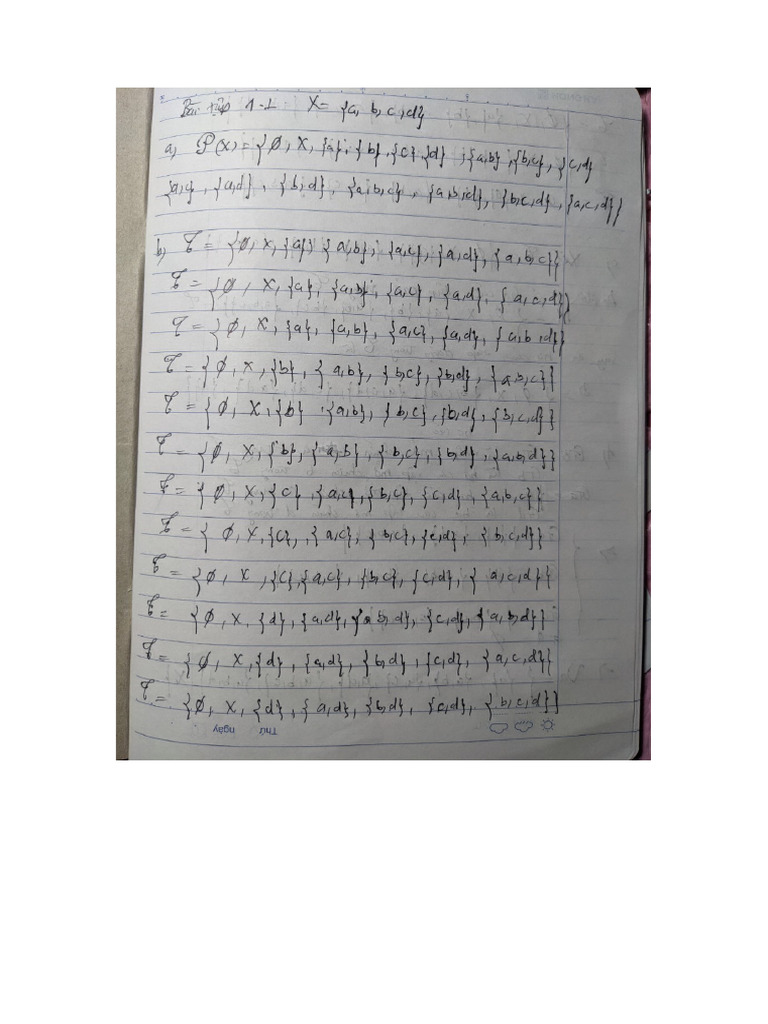 Bài tập 1-1 X = {a, b, c, d}
a, P(X) = {Ø, X, {a}, {b}, {c}, {d}, {a,b}, {b,c}, {c,d}
{a,c}, {a,d}, {b,d}, {a,b,c}, {a,b,d}, {b,c,d}, {a,c,d}}
b, τ = {Ø, X, {a}, {a,b}, {a,c}, {a,d}, {a,b,c}}
τ = {Ø, X, {a}, {a,b}, {a,c}, {a,d}, {a,c,d}}
τ = {Ø, X, {a}, {a,b}, {a,c}, {a,d}, {a,b,d}}
τ = {Ø, X, {b}, {a,b}, {b,c}, {b,d}, {a,b,c}}
τ = {Ø, X, {b}, {a,b}, {b,c}, {b,d}, {b,c,d}}
τ = {Ø, X, {b}, {a,b}, {b,c}, {b,d}, {a,b,d}}
τ = {Ø, X, {c}, {a,c}, {b,c}, {c,d}, {a,b,c}}
τ = {Ø, X, {c}, {a,c}, {b,c}, {c,d}, {b,c,d}}
τ = {Ø, X, {c}, {a,c}, {b,c}, {c,d}, {a,c,d}}
τ = {Ø, X, {d}, {a,d}, {b,d}, {c,d}, {a,b,d}}
τ = {Ø, X, {d}, {a,d}, {b,d}, {c,d}, {a,c,d}}
τ = {Ø, X, {d}, {a,d}, {b,d}, {c,d}, {b,c,d}}
Thứ ngày